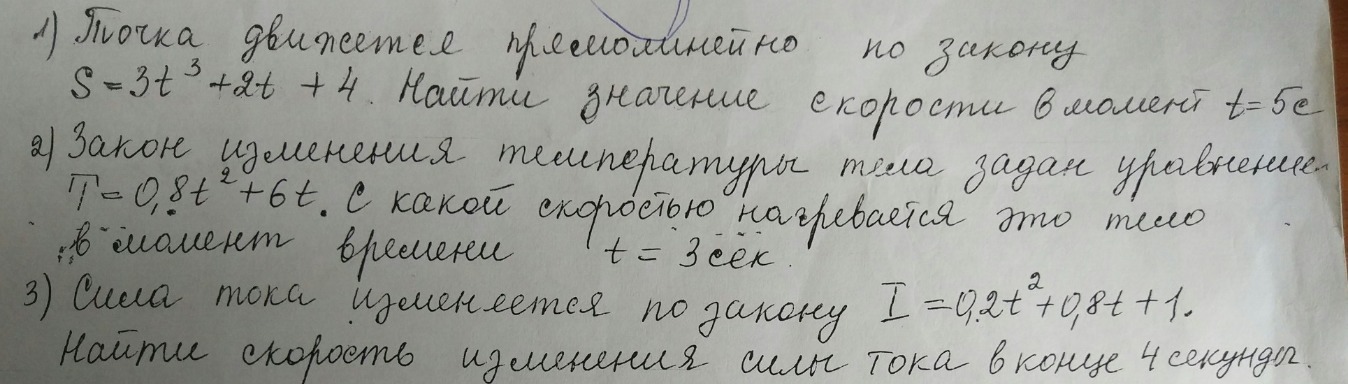 1) Точка движется прямолинейно по закону
S = 3t³ + 2t + 4. Найти значение скорости в момент t = 5с
2) Закон изменения температуры тела задан уравнением
T = 0,8t² + 6t. С какой скоростью нагревается это тело
в момент времени t = 3 сек.
3) Сила тока изменяется по закону I = 0,2t² + 0,8t + 1.
Найти скорость изменения силы тока в конце 4 секунды.